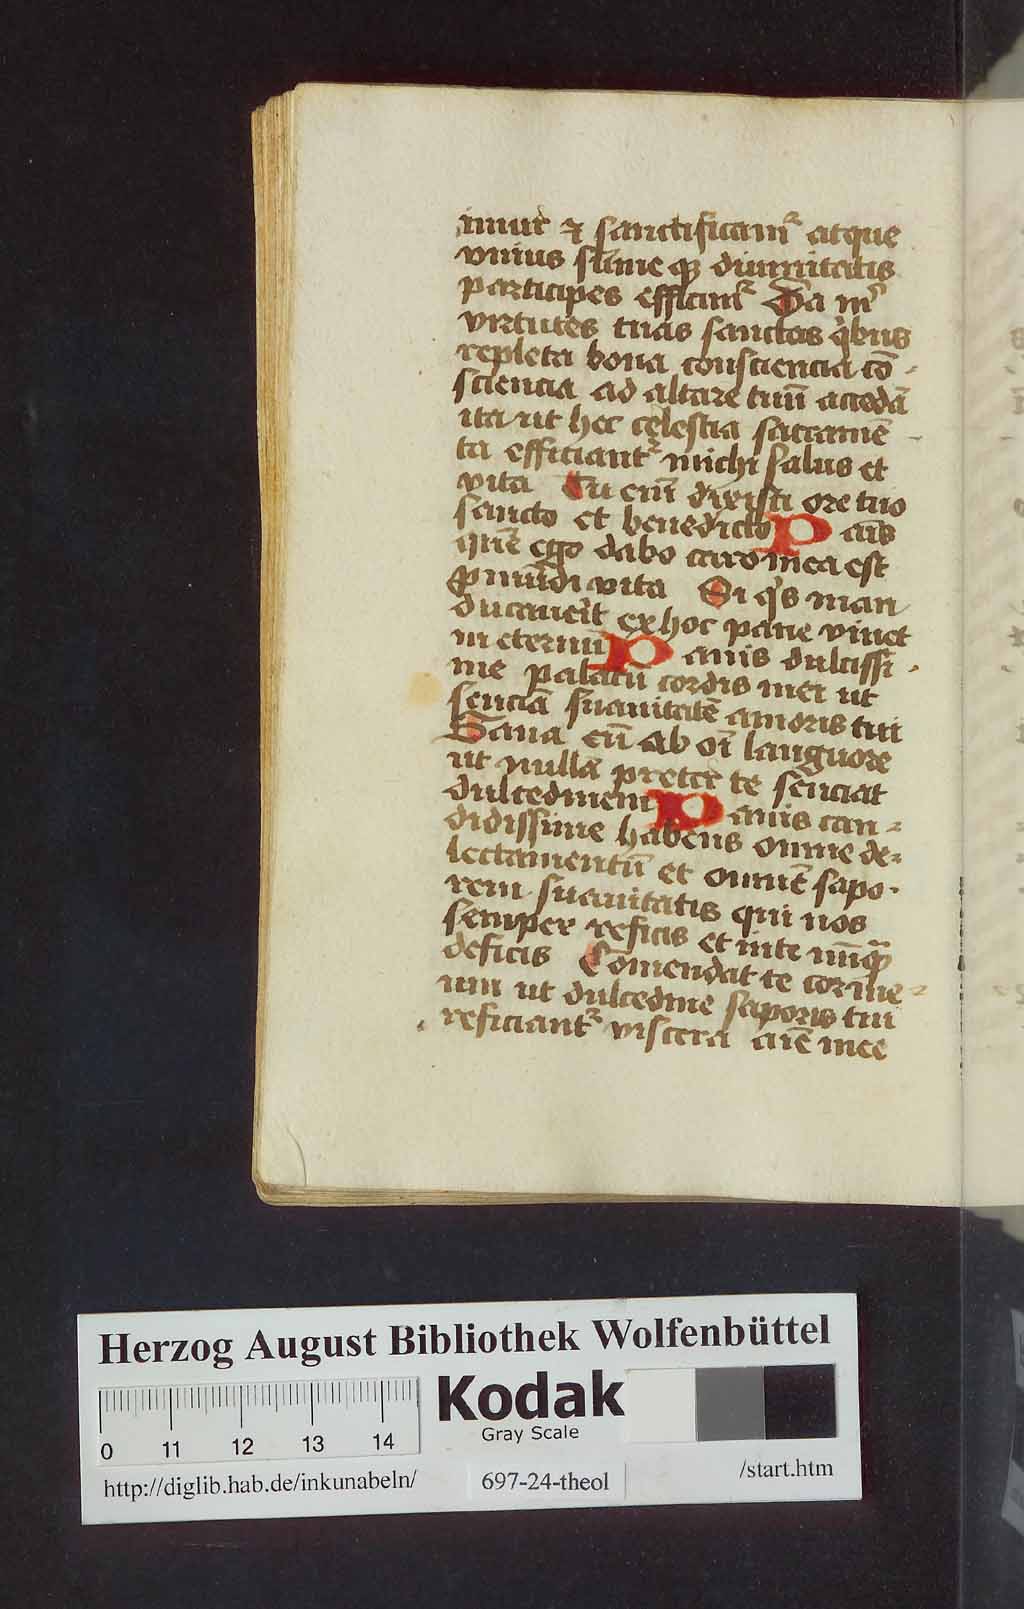 imur̄ ⁊ sanctificam᷑ atque
vnius sūme qꝫ diuinitatis
participes efficim᷑ Da m̄
virtutes tuas sanctas qͥbus
repleta bona consciencia cō-
sciencia ad altare tuū accedā
ita ut hec celestia sacramē-
ta efficiant᷑ michi salus et
vita Tu eni̅ dixisti ore tuo
sancto et benedicto Panis
quē ego dabo caro mea est
ꝓ mūdi vita Si qͥs man
ducauerīt ex hoc pane viuet
in eternū Panis dulcissi-
me palatū cordis mei ut
senciā suauitatē amoris tui
Sana eū ab oī languore
ut nullā preter te senciat
dulcedinem Panis can-
didissime habens omne de-
lectamentū et omnē sapo-
rem suauitatis qui nos
semper reficis et in te nūqꝫ
deficis Comendat te cor me-
um ut dulcedine saporis tui
reficiant᷑ viscera aīe mee
Herzog August Bibliothek Wolfenbüttel
Kodak
Gray Scale
0 11 12 13 14
http://diglib.hab.de/inkunabeln/ 697-24-theol /start.htm